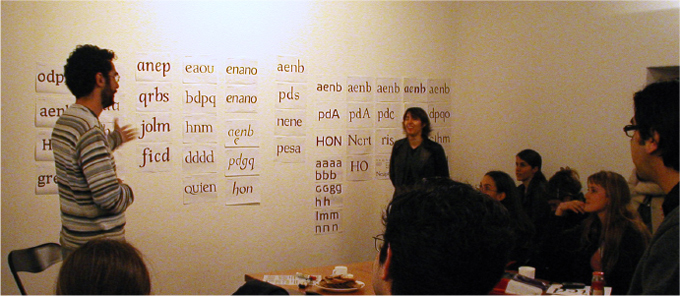 anep
qrbs
jolm
ficd
eaou
bdpq
hnm
dddd
quien
enano
enano
pdgq
hon
aenb
pds
nene
pesa
aenb
pdA
HON
aaaa
bbb
hh
lmm
nnn
aenb
pdA
HO
aenb
pdc
aenb
aenb
dpqo